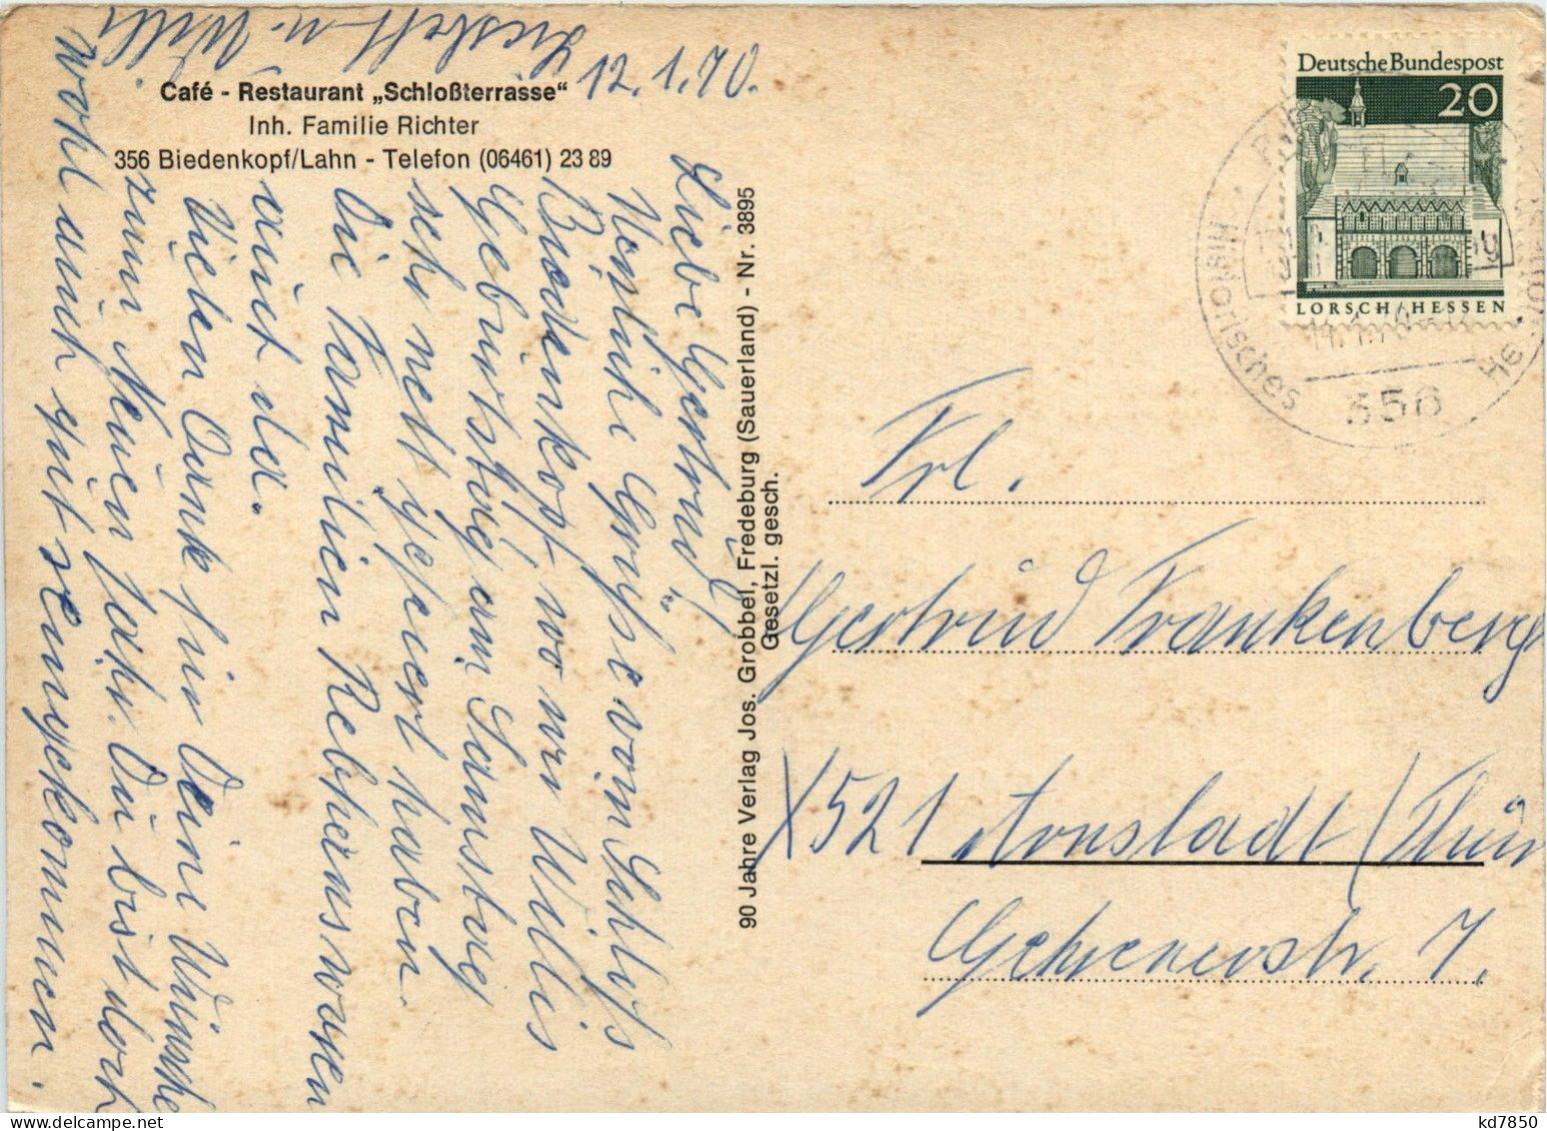 Café - Restaurant „Schloßterrasse“
Inh. Familie Richter
356 Biedenkopf/Lahn - Telefon (06461) 23 89
12.1.70.
Liebe Gertrud,
Herzliche Grüße vom Schloß
Biedenkopf, wo wir Willis
Geburtstag am Samstag
sehr nett gefeiert haben.
Die Familien Rebhens waren
auch da.
Vielen Dank für Deine Wünsche
zum Neuen Jahr. Du bist doch
wohl auch gut reingekommen.
Liesbeth u. Willi.
90 Jahre Verlag Jos. Grobbel, Fredeburg (Sauerland) - Nr. 3895
Gesetzl. gesch.
Deutsche Bundespost
20
LORSCH/HESSEN
Historisches
356
Frl.
Gertrud Frankenberg
X521 Arnstadt/Thür
Gehrenerstr. 7.
kd7850